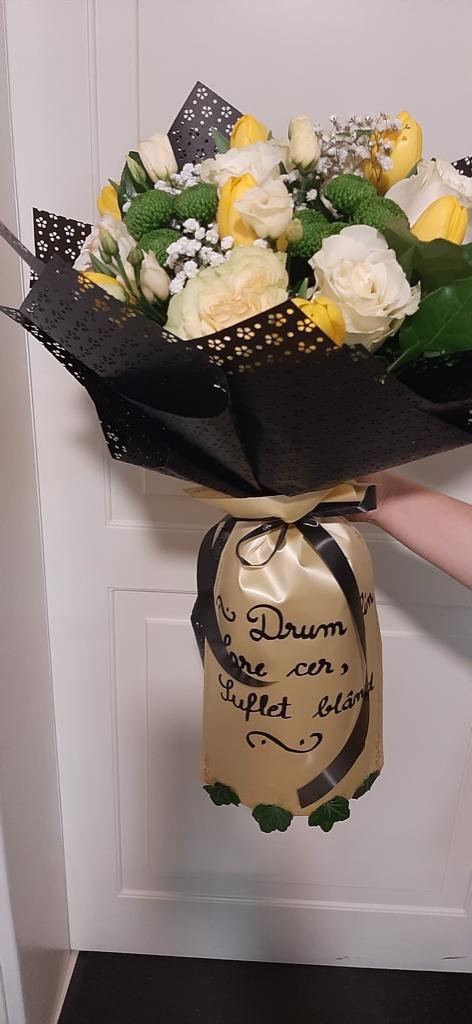 Drum în
spre cer,
Suflet blând